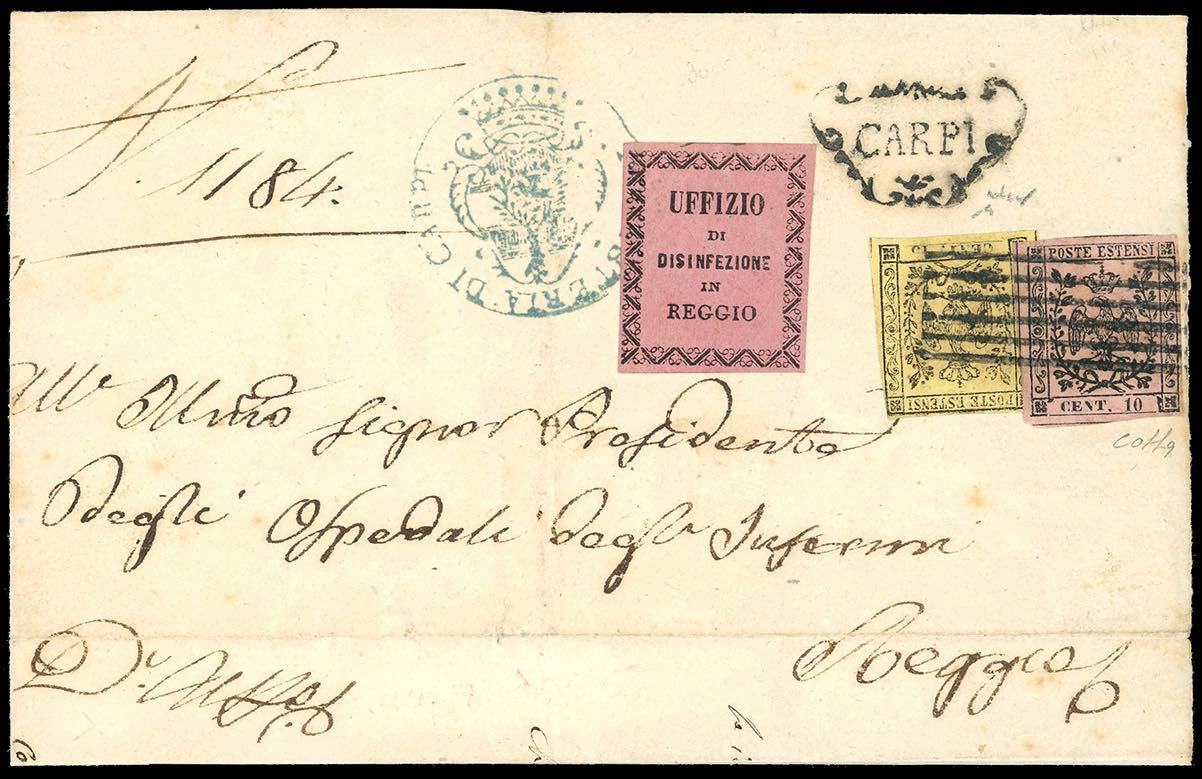 N.o 1184.
DI CARPI
CARPI
UFFIZIO
DI
DISINFEZIONE
IN
REGGIO
CENT. 15
POSTE ESTENSI
POSTE ESTENSI
CENT. 10
All'Illmo Signor Presidente
degli Ospedali degl'Infermi
Reggio